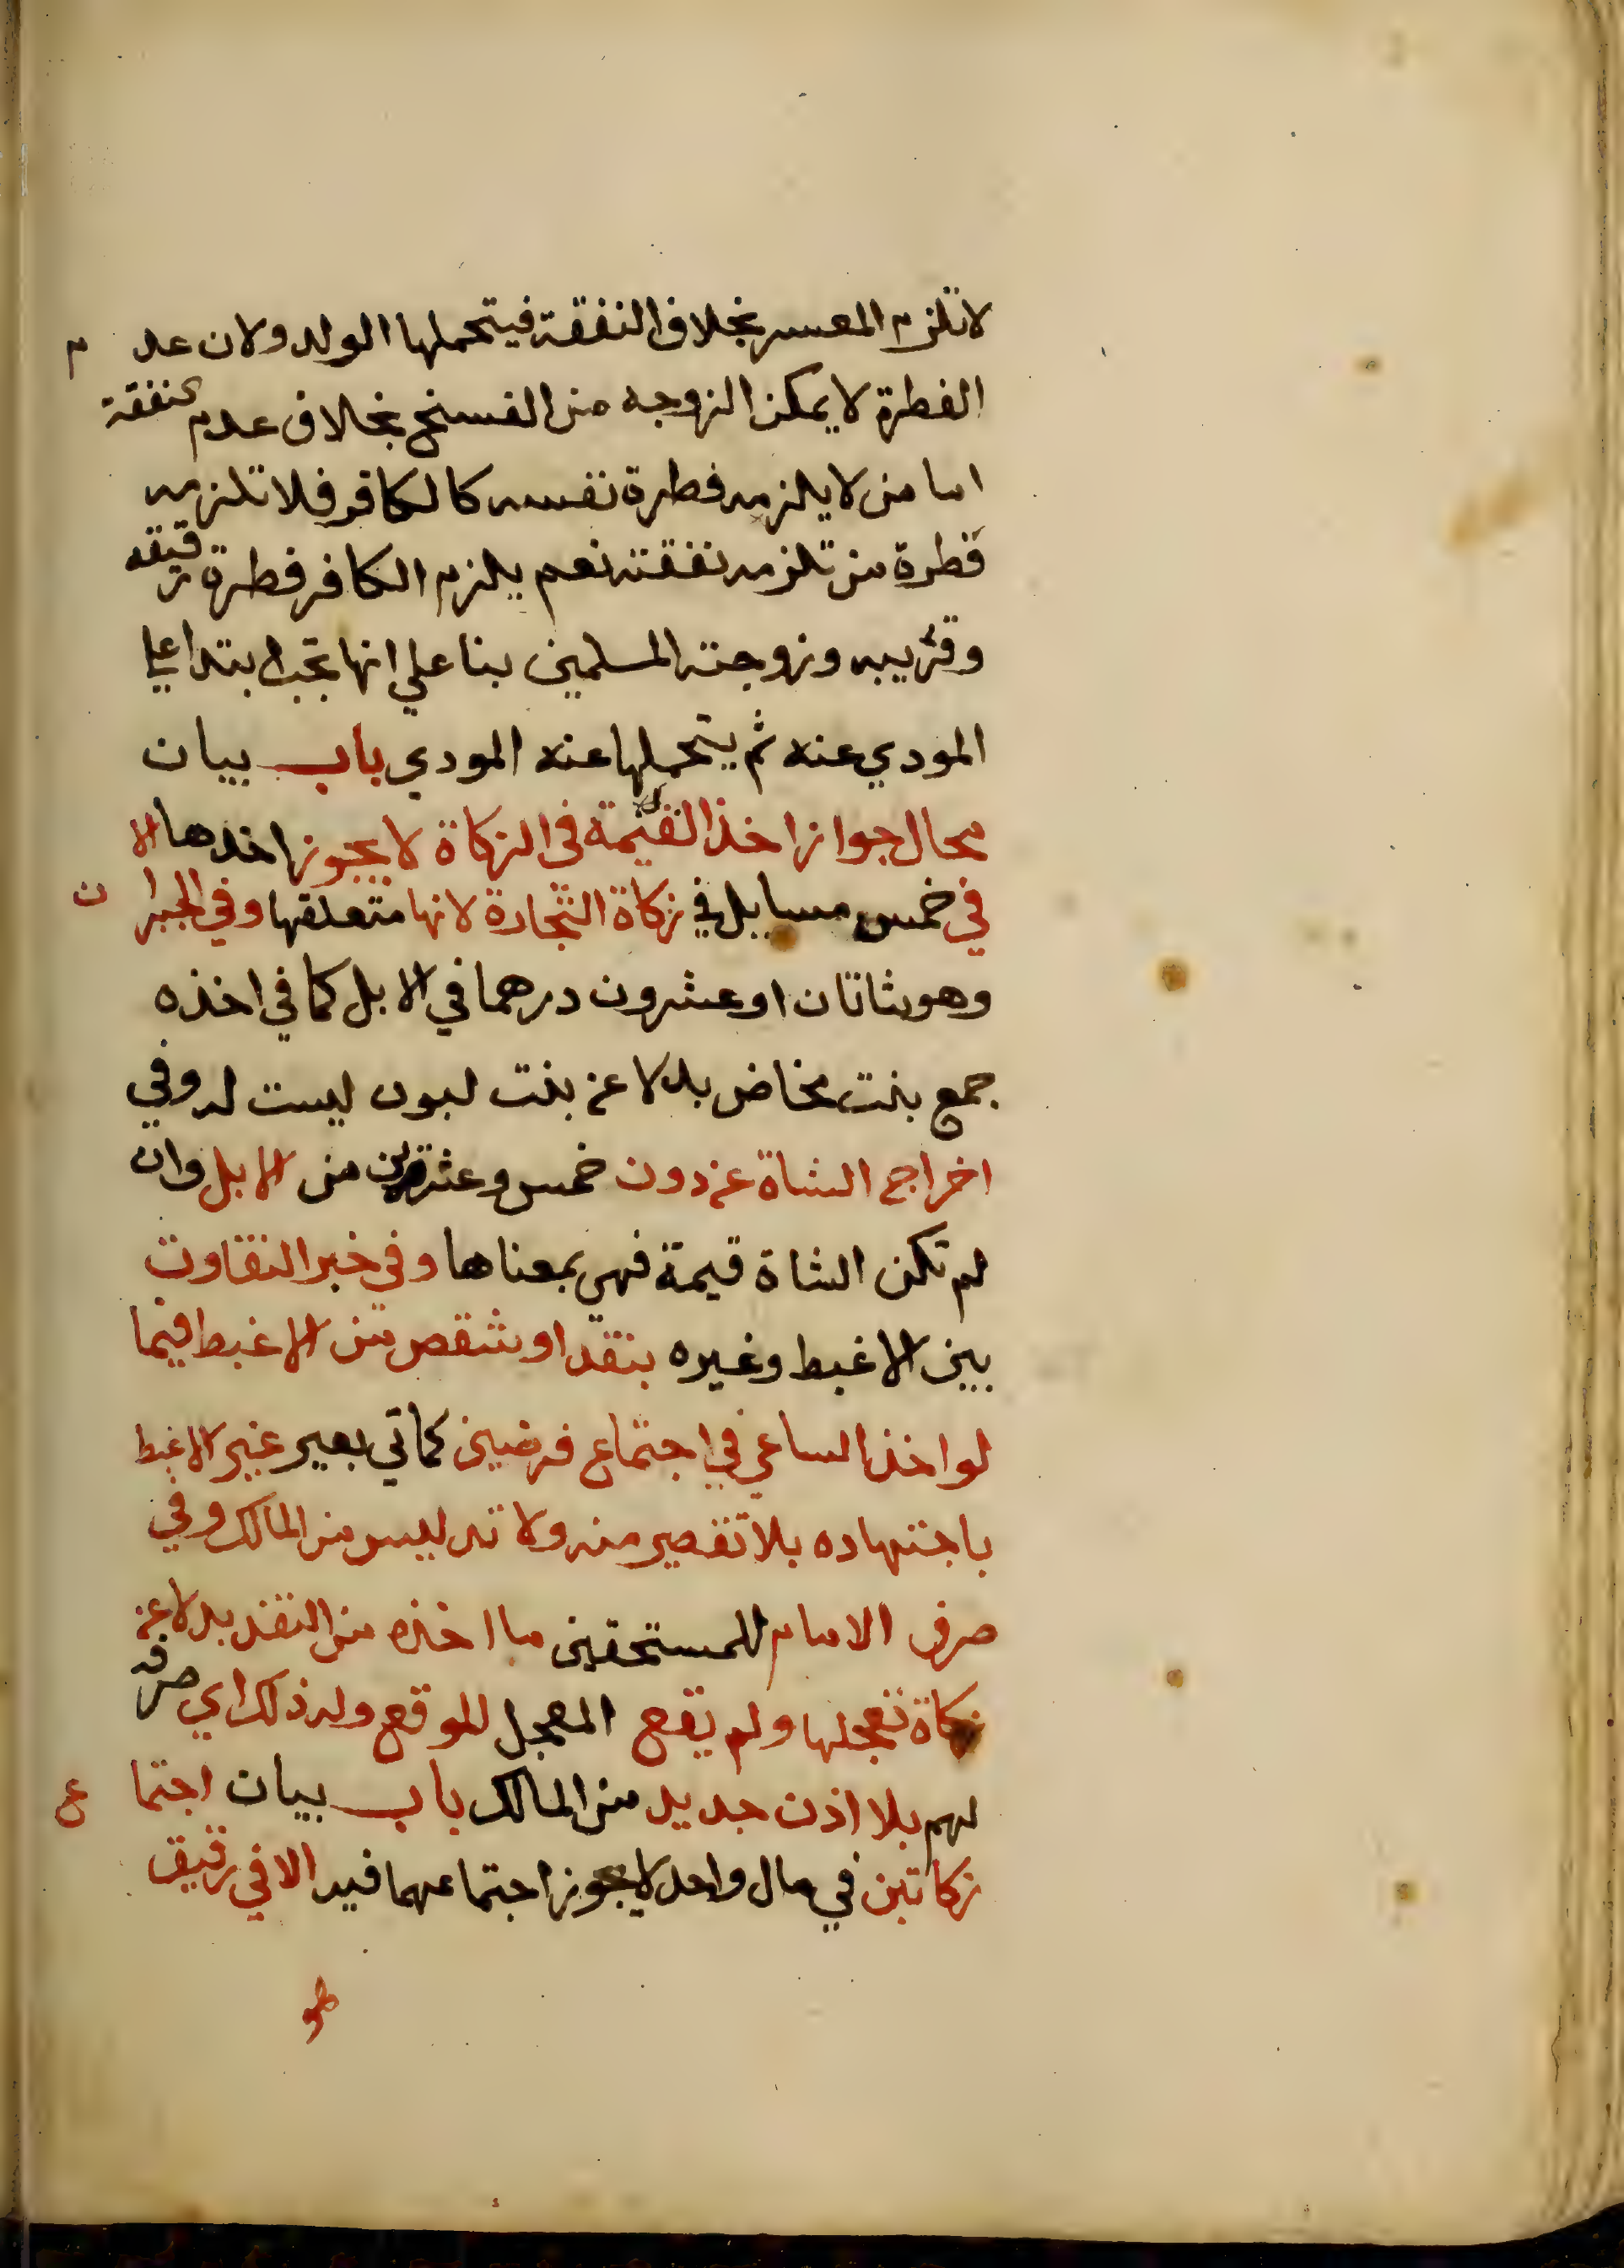 لا تلزم المعسر بخلاف النفقة فيتحملها الولد ولان عدم
الفطرة لا يمكن الزوجه من الفسخ بخلاف عدم النفقة
اما من لا يلزمه فطرة نفسه كالكافر فلا تلزمه
فطرة من تلزمه نفقته نعم يلزم الكافر فطرة رقيقه
وقريبه وزوجته المسلمين بنا علي انها تجب ابتدا علي
المودي عنه ثم يتحملها عنه المودي باب بيان
محال جواز اخذ القيمة في الزكاة لا يجوز اخذها الا
في خمس مسايل في زكاة التجارة لانها متعلقها وفي الجبران
وهو شاتان او عشرون درهما في الابل كما في اخذه
مع بنت مخاض بدلا عن بنت لبون ليست له وفي
اخراج الشاة عن دون خمس وعشرين من الابل وان
لم تكن الشاة قيمة فهي بمعناها وفي خبر التفاوت
بين الاغبط وغيره بنقد او شقص من الاغبط فيما
لو اخذ الساعي في اجتماع فرضين كماتي بعير غير الاغبط
باجتهاده بلا تقصير منه ولا تدليس من المالك وفي
صرف الامام للمستحقين ما اخذه من النقد بدلا عن
زكاة تعجلها ولم يقع المعجل الموقع وله ذلك اي صرفه
لهم بلا اذن جديد من المالك باب بيان اجتماع
زكاتين في مال واحد لا يجوز اجتماعهما فيه الا في رقيق